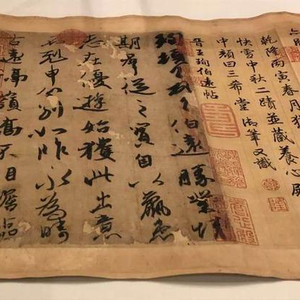 乾隆丙寅春月獲
快雪中秋二蹟並藏養心殿
中顏曰三希堂御筆又識
晉王珣伯遠帖
珣頓首頓首伯遠勝業情
期羣從之寶自以羸患
志在優遊始獲此出意
不剋申分別如昨永為疇
古遠隔嶺嶠不相瞻臨